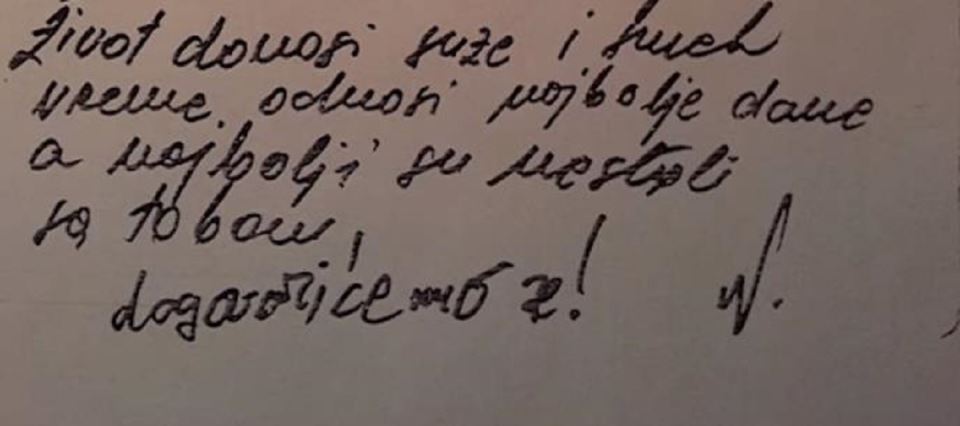 život donosi suze i smeh
vreme odnosi najbolje dane
a najbolji su nestali
sa tobom,
dogorićemo z! N.